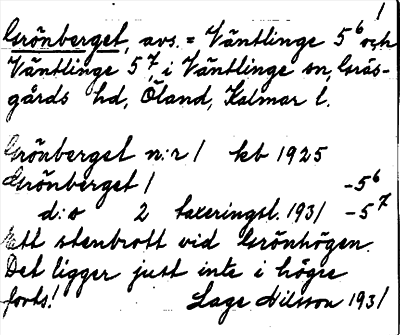 1
Grönberget, avs. = Väntlinge 5⁶ och
Väntlinge 5⁷, i Väntlinge sn, Gräs-
gårds hd, Öland, Kalmar l.
Grönberget n:r 1 kb 1925
Grönberget 1 -5⁶
d:o 2 taxeringsl. 1931 -5⁷
Ett stenbrott vid Grönhögen.
Det ligger just inte i högre
forts! Lage Nilsson 1931